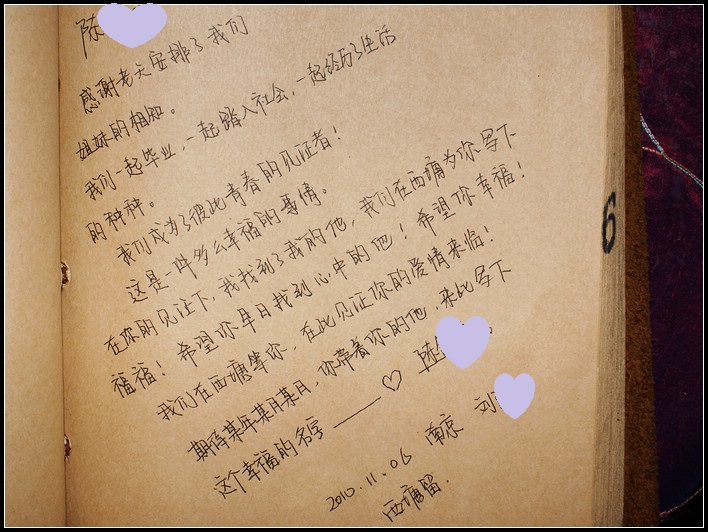 陈
感谢老天安排了我们
姐妹的相知。
我们一起毕业,一起踏入社会,一起经历了生活
的种种。
我们成为了彼此青春的见证者!
这是一件多么幸福的事情。
在你的见证下,我找到了我的他,我们在西塘为你写下
福福!希望你早日找到心中的他!希望你幸福!
我们在西塘等你,在此见证你的爱情来临!
期待某年某月某日,你带着你的他,来此写下
这个幸福的名字——♡ 陈
南京 刘
2010.11.06
西塘留.
6